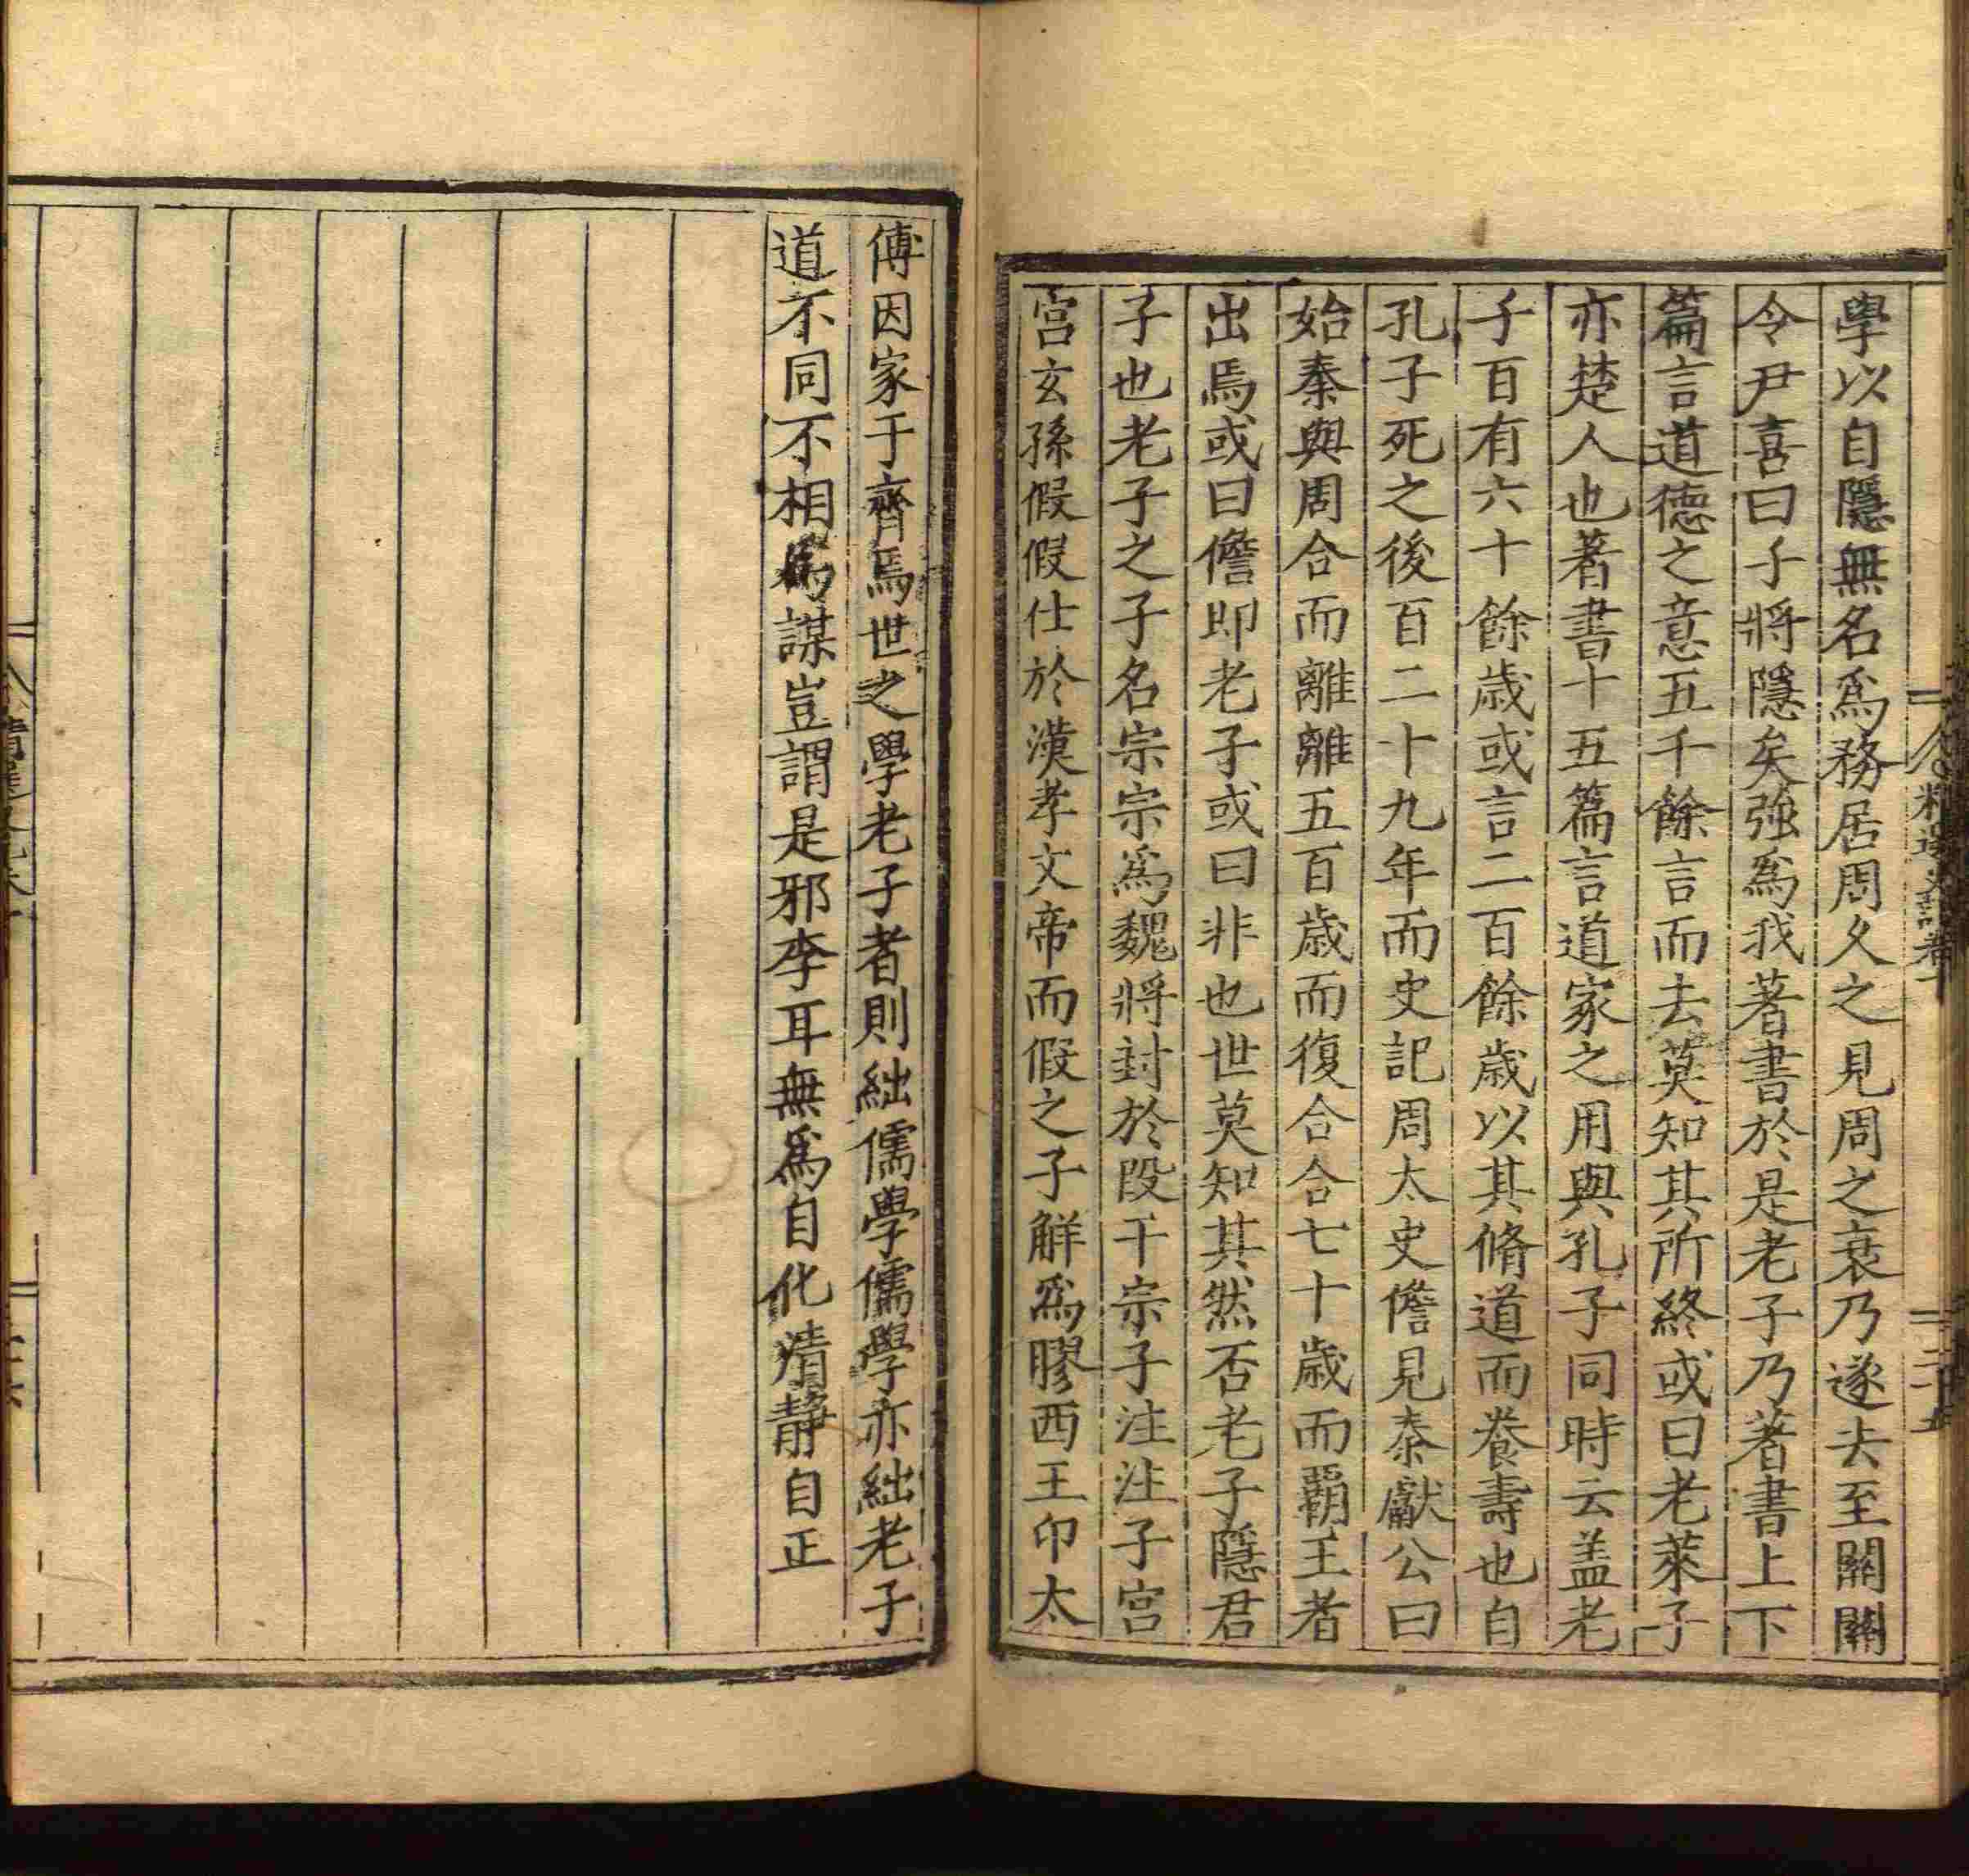 學以自隱無名爲務居周久之見周之衰乃遂去至關關
令尹喜曰子將隱矣強爲我著書於是老子乃著書上下
篇言道德之意五千餘言而去莫知其所終或曰老萊子
亦楚人也著書十五篇言道家之用與孔子同時云盖老
子百有六十餘歲或言二百餘歲以其脩道而養壽也自
孔子死之後百二十九年而史記周太史儋見秦獻公曰
始秦與周合而離離五百歲而復合合七十歲而覇王者
出焉或曰儋即老子或曰非也世莫知其然否老子隱君
子也老子之子名宗宗爲魏將封於段干宗子注注子宮
宮玄孫假假仕於漢孝文帝而假之子解爲膠西王卬太
傅因家于齊焉世之學老子者則絀儒學儒學亦絀老子
道不同不相爲謀豈謂是邪李耳無爲自化清靜自正